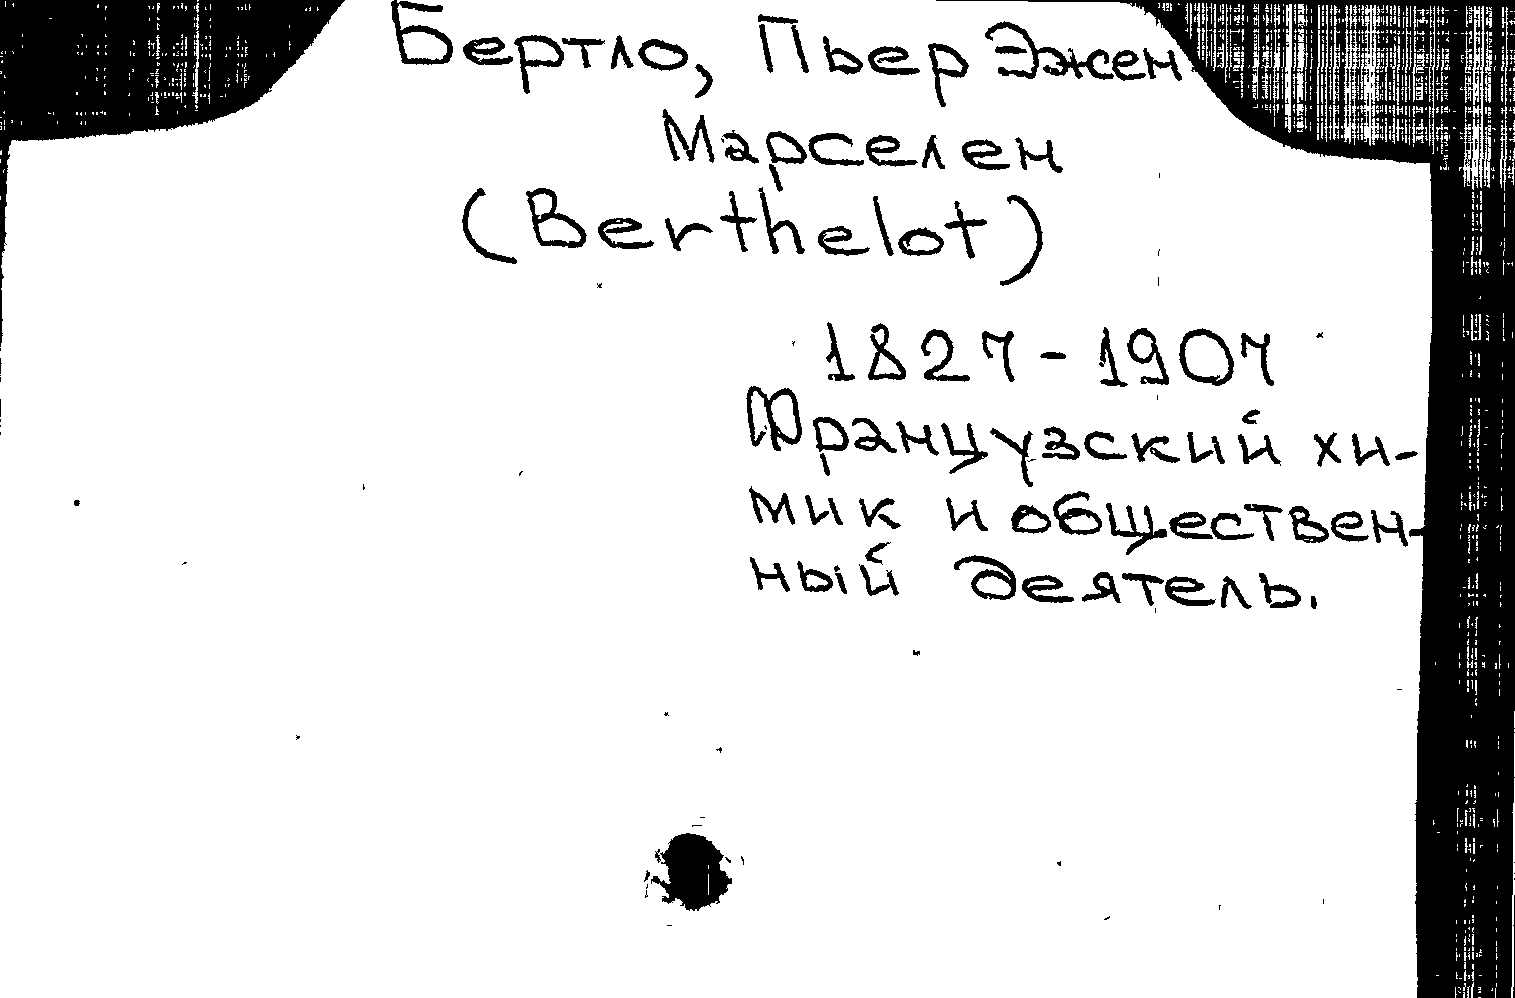 Бертло, Пьер Эжен
Марселен
(Berthelot)
1827-1907
Французский хи-
мик и обществен-
ный деятель.